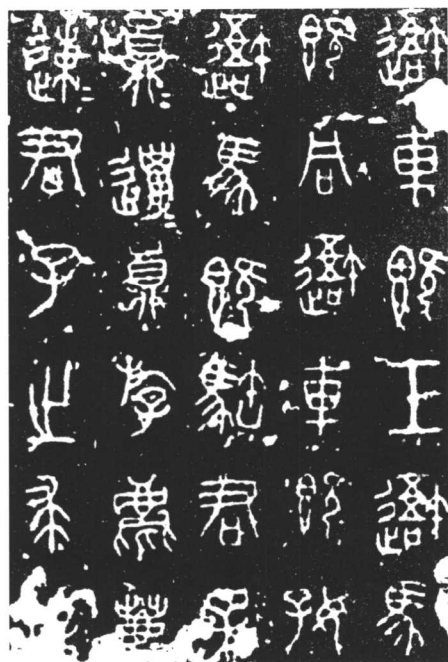 吾車既工吾馬
既同吾車既好
吾馬既𩣡君子
員邋員斿麀鹿
速君子之求